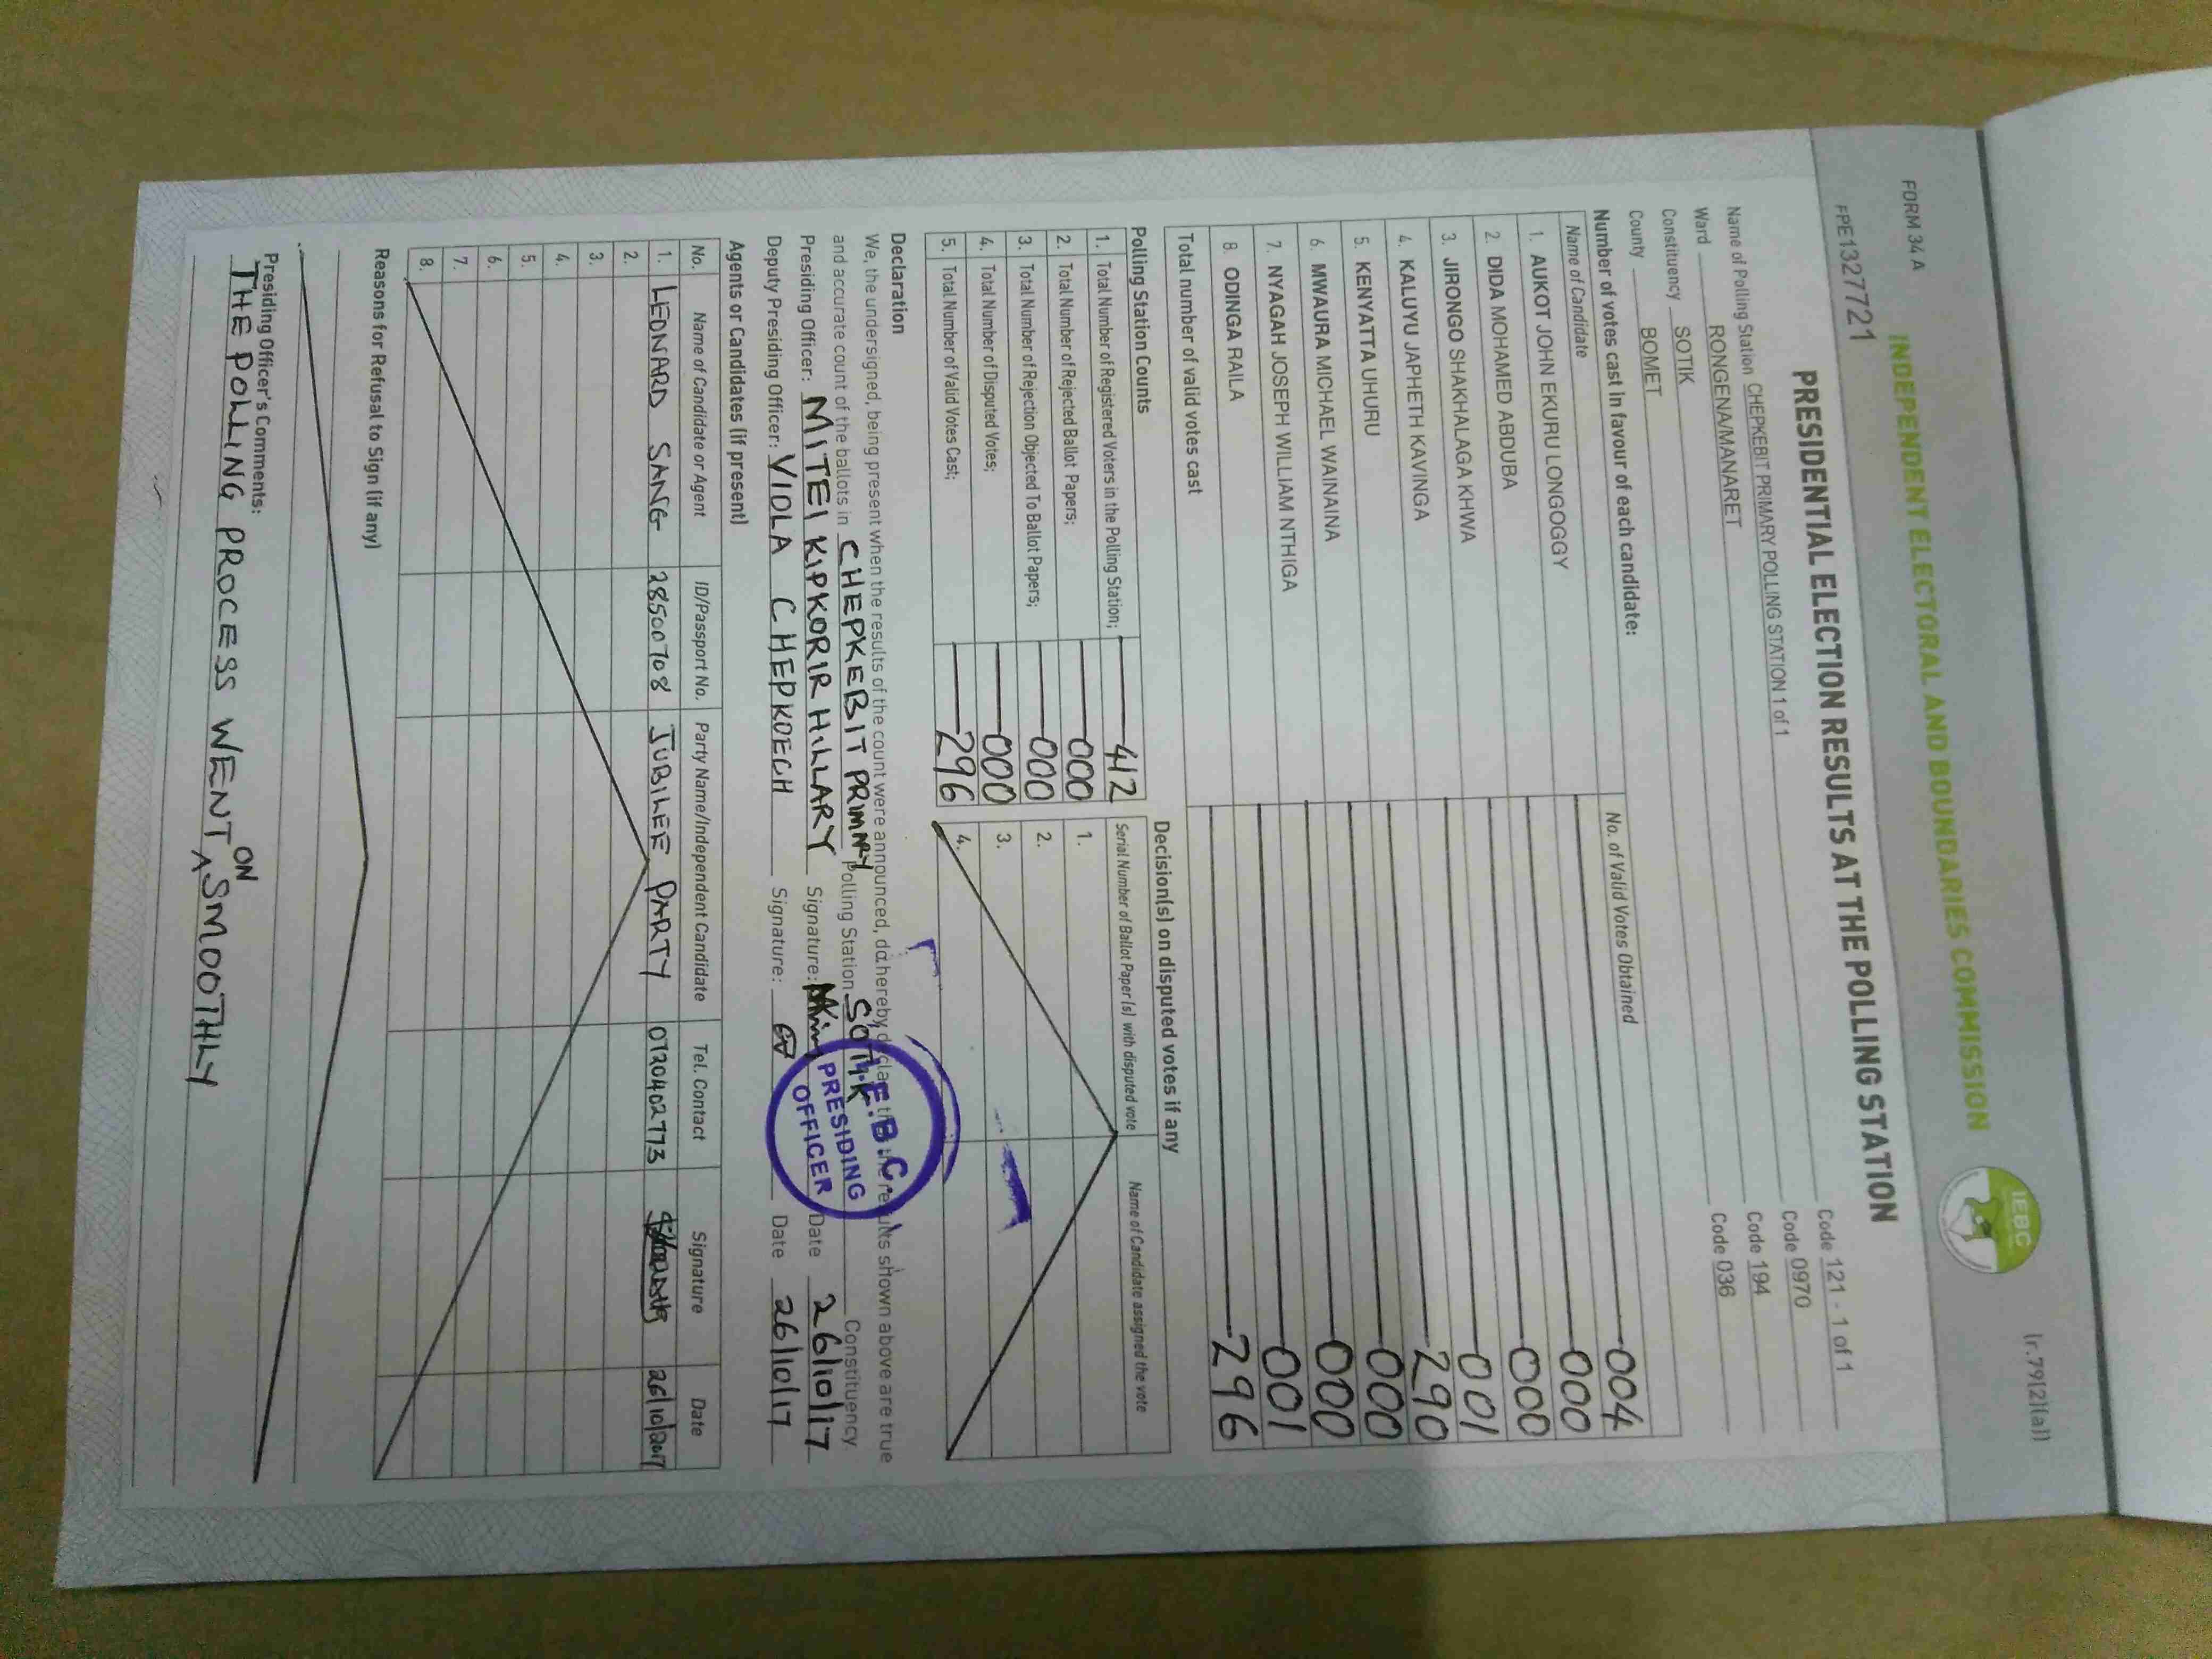 FORM 34 A
(r.79(2)(a))
FPE1327721
INDEPENDENT ELECTORAL AND BOUNDARIES COMMISSION
IEBC
PRESIDENTIAL ELECTION RESULTS AT THE POLLING STATION
Name of Polling Station CHEPKEBIT PRIMARY POLLING STATION 1 of 1 Code 121 - 1 of 1
Ward RONGENA/MANARET Code 0970
Constituency SOTIK Code 194
County BOMET Code 036
Number of votes cast in favour of each candidate:
Name of Candidate No. of Valid Votes Obtained
1. AUKOT JOHN EKURU LONGOGGY 004
2. DIDA MOHAMED ABDUBA 000
3. JIRONGO SHAKHALAGA KHWA 000
4. KALUYU JAPHETH KAVINGA 001
5. KENYATTA UHURU 290
6. MWAURA MICHAEL WAINAINA 000
7. NYAGAH JOSEPH WILLIAM NTHIGA 000
8. ODINGA RAILA 001
Total number of valid votes cast 296
Polling Station Counts
1. Total Number of Registered Voters in the Polling Station; 412
2. Total Number of Rejected Ballot Papers; 000
3. Total Number of Rejection Objected To Ballot Papers; 000
4. Total Number of Disputed Votes; 000
5. Total Number of Valid Votes Cast; 296
Decision(s) on disputed votes if any
Serial Number of Ballot Paper (s) with disputed vote Name of Candidate assigned the vote
1.
2.
3.
4.
Declaration
We, the undersigned, being present when the results of the count were announced, do hereby declare that the results shown above are true
and accurate count of the ballots in CHEPKEBIT PRIMARY Polling Station SOTIK Constituency
Presiding Officer: MITEI KIPKORIR HILLARY Signature: Date 26/10/17
Deputy Presiding Officer: VIOLA CHEPKOECH Signature: Date 26/10/17
I.E.B.C.
PRESIDING
OFFICER
Agents or Candidates (if present)
No. Name of Candidate or Agent ID/Passport No. Party Name/Independent Candidate Tel. Contact Signature Date
1. LEONARD SANG 28500708 JUBILEE PARTY 0720402773 26/10/2017
2.
3.
4.
5.
6.
7.
8.
Reasons for Refusal to Sign (if any)
Presiding Officer's Comments:
THE POLLING PROCESS WENT ON SMOOTHLY